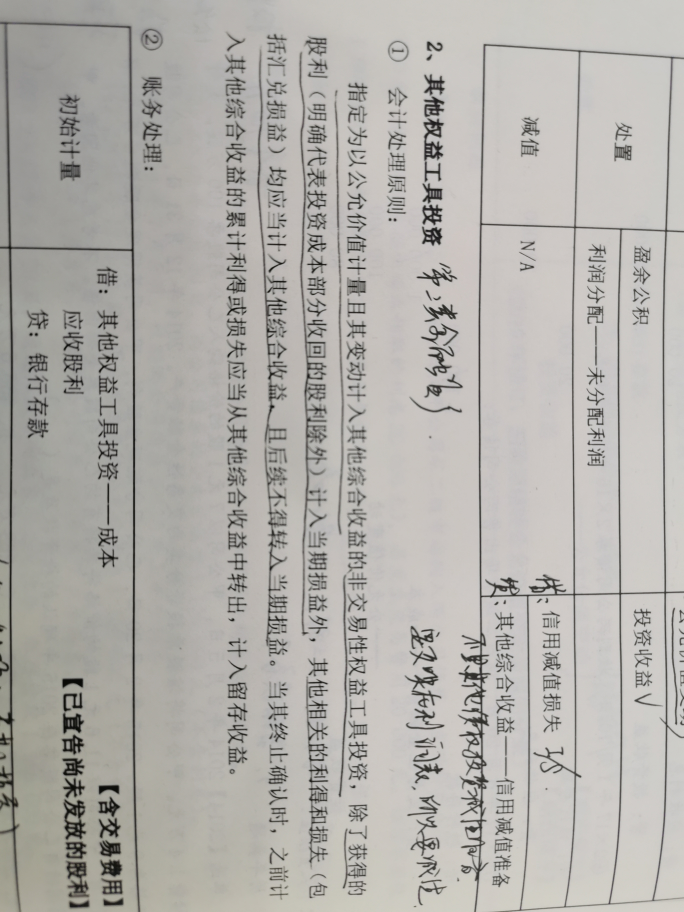 处置
盈余公积
利润分配——未分配利润
投资收益
减值
N/A
借：信用减值损失
贷：其他综合收益——信用减值准备
2、其他权益工具投资
① 会计处理原则：
指定为以公允价值计量且其变动计入其他综合收益的非交易性权益工具投资，除了获得的
股利（明确代表投资成本部分收回的股利除外）计入当期损益外，其他相关的利得和损失（包
括汇兑损益）均应当计入其他综合收益，且后续不得转入当期损益。当其终止确认时，之前计
入其他综合收益的累计利得或损失应当从其他综合收益中转出，计入留存收益。
② 账务处理：
初始计量
借：其他权益工具投资——成本 【含交易费用】
应收股利 【已宣告尚未发放的股利】
贷：银行存款